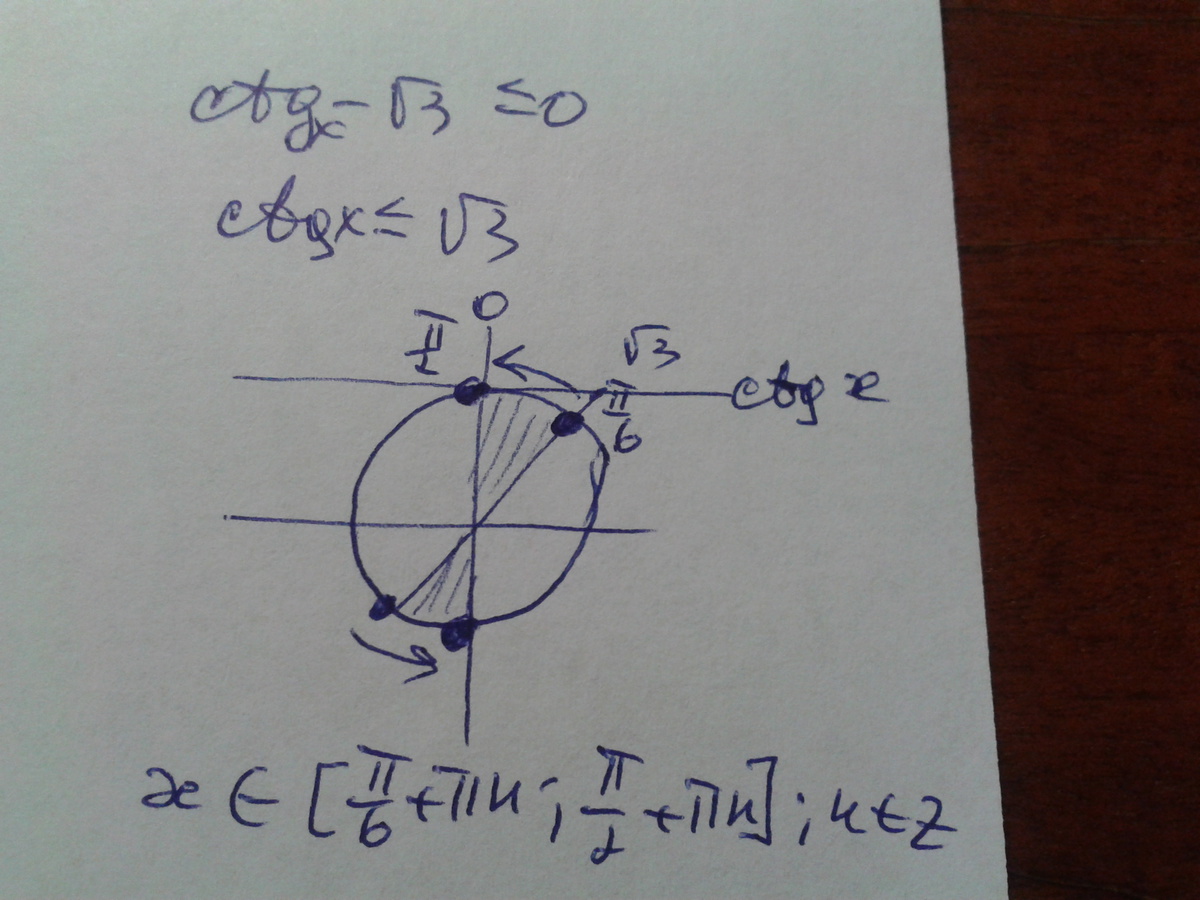 ctgx - √3 ≤ 0
ctgx ≤ √3
0
π/2
√3
ctg x
π/6
x ∈ [π/6 + πn ; π/2 + πn] ; n ∈ Z